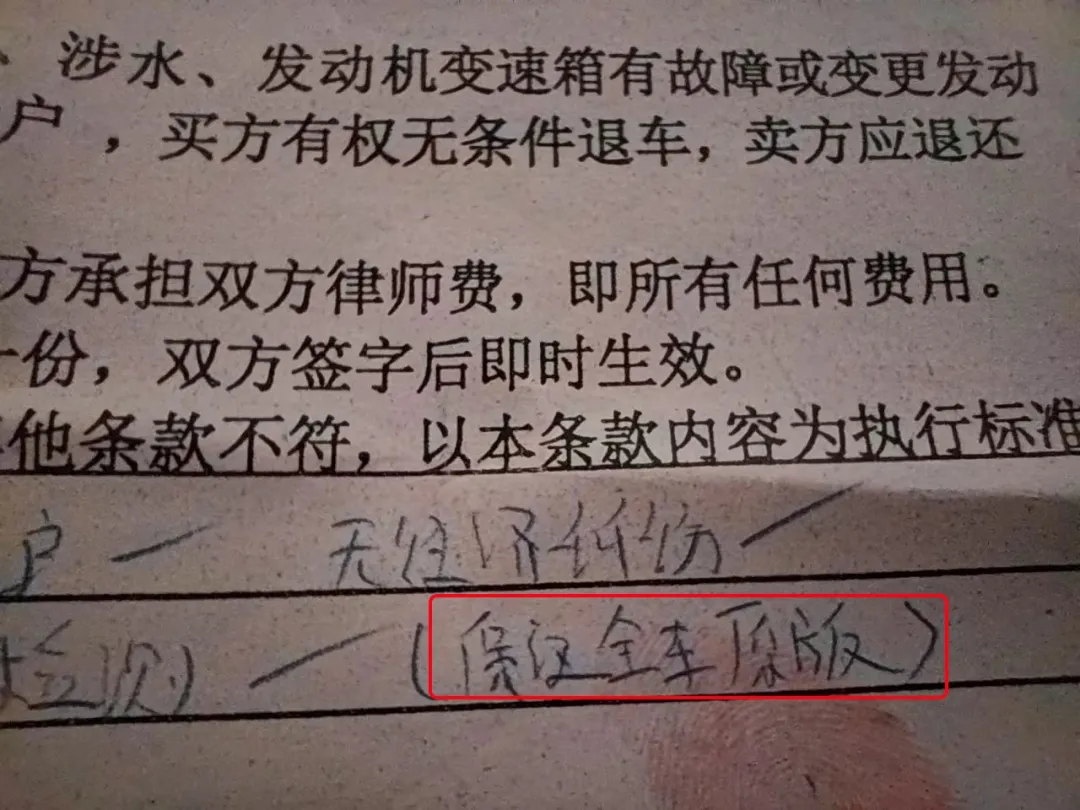 、涉水、发动机变速箱有故障或变更发动
户，买方有权无条件退车，卖方应退还
方承担双方律师费，即所有任何费用。
份，双方签字后即时生效。
其他条款不符，以本条款内容为执行标准
户 — 无经济纠纷 —
检测) — (保证全车原版)